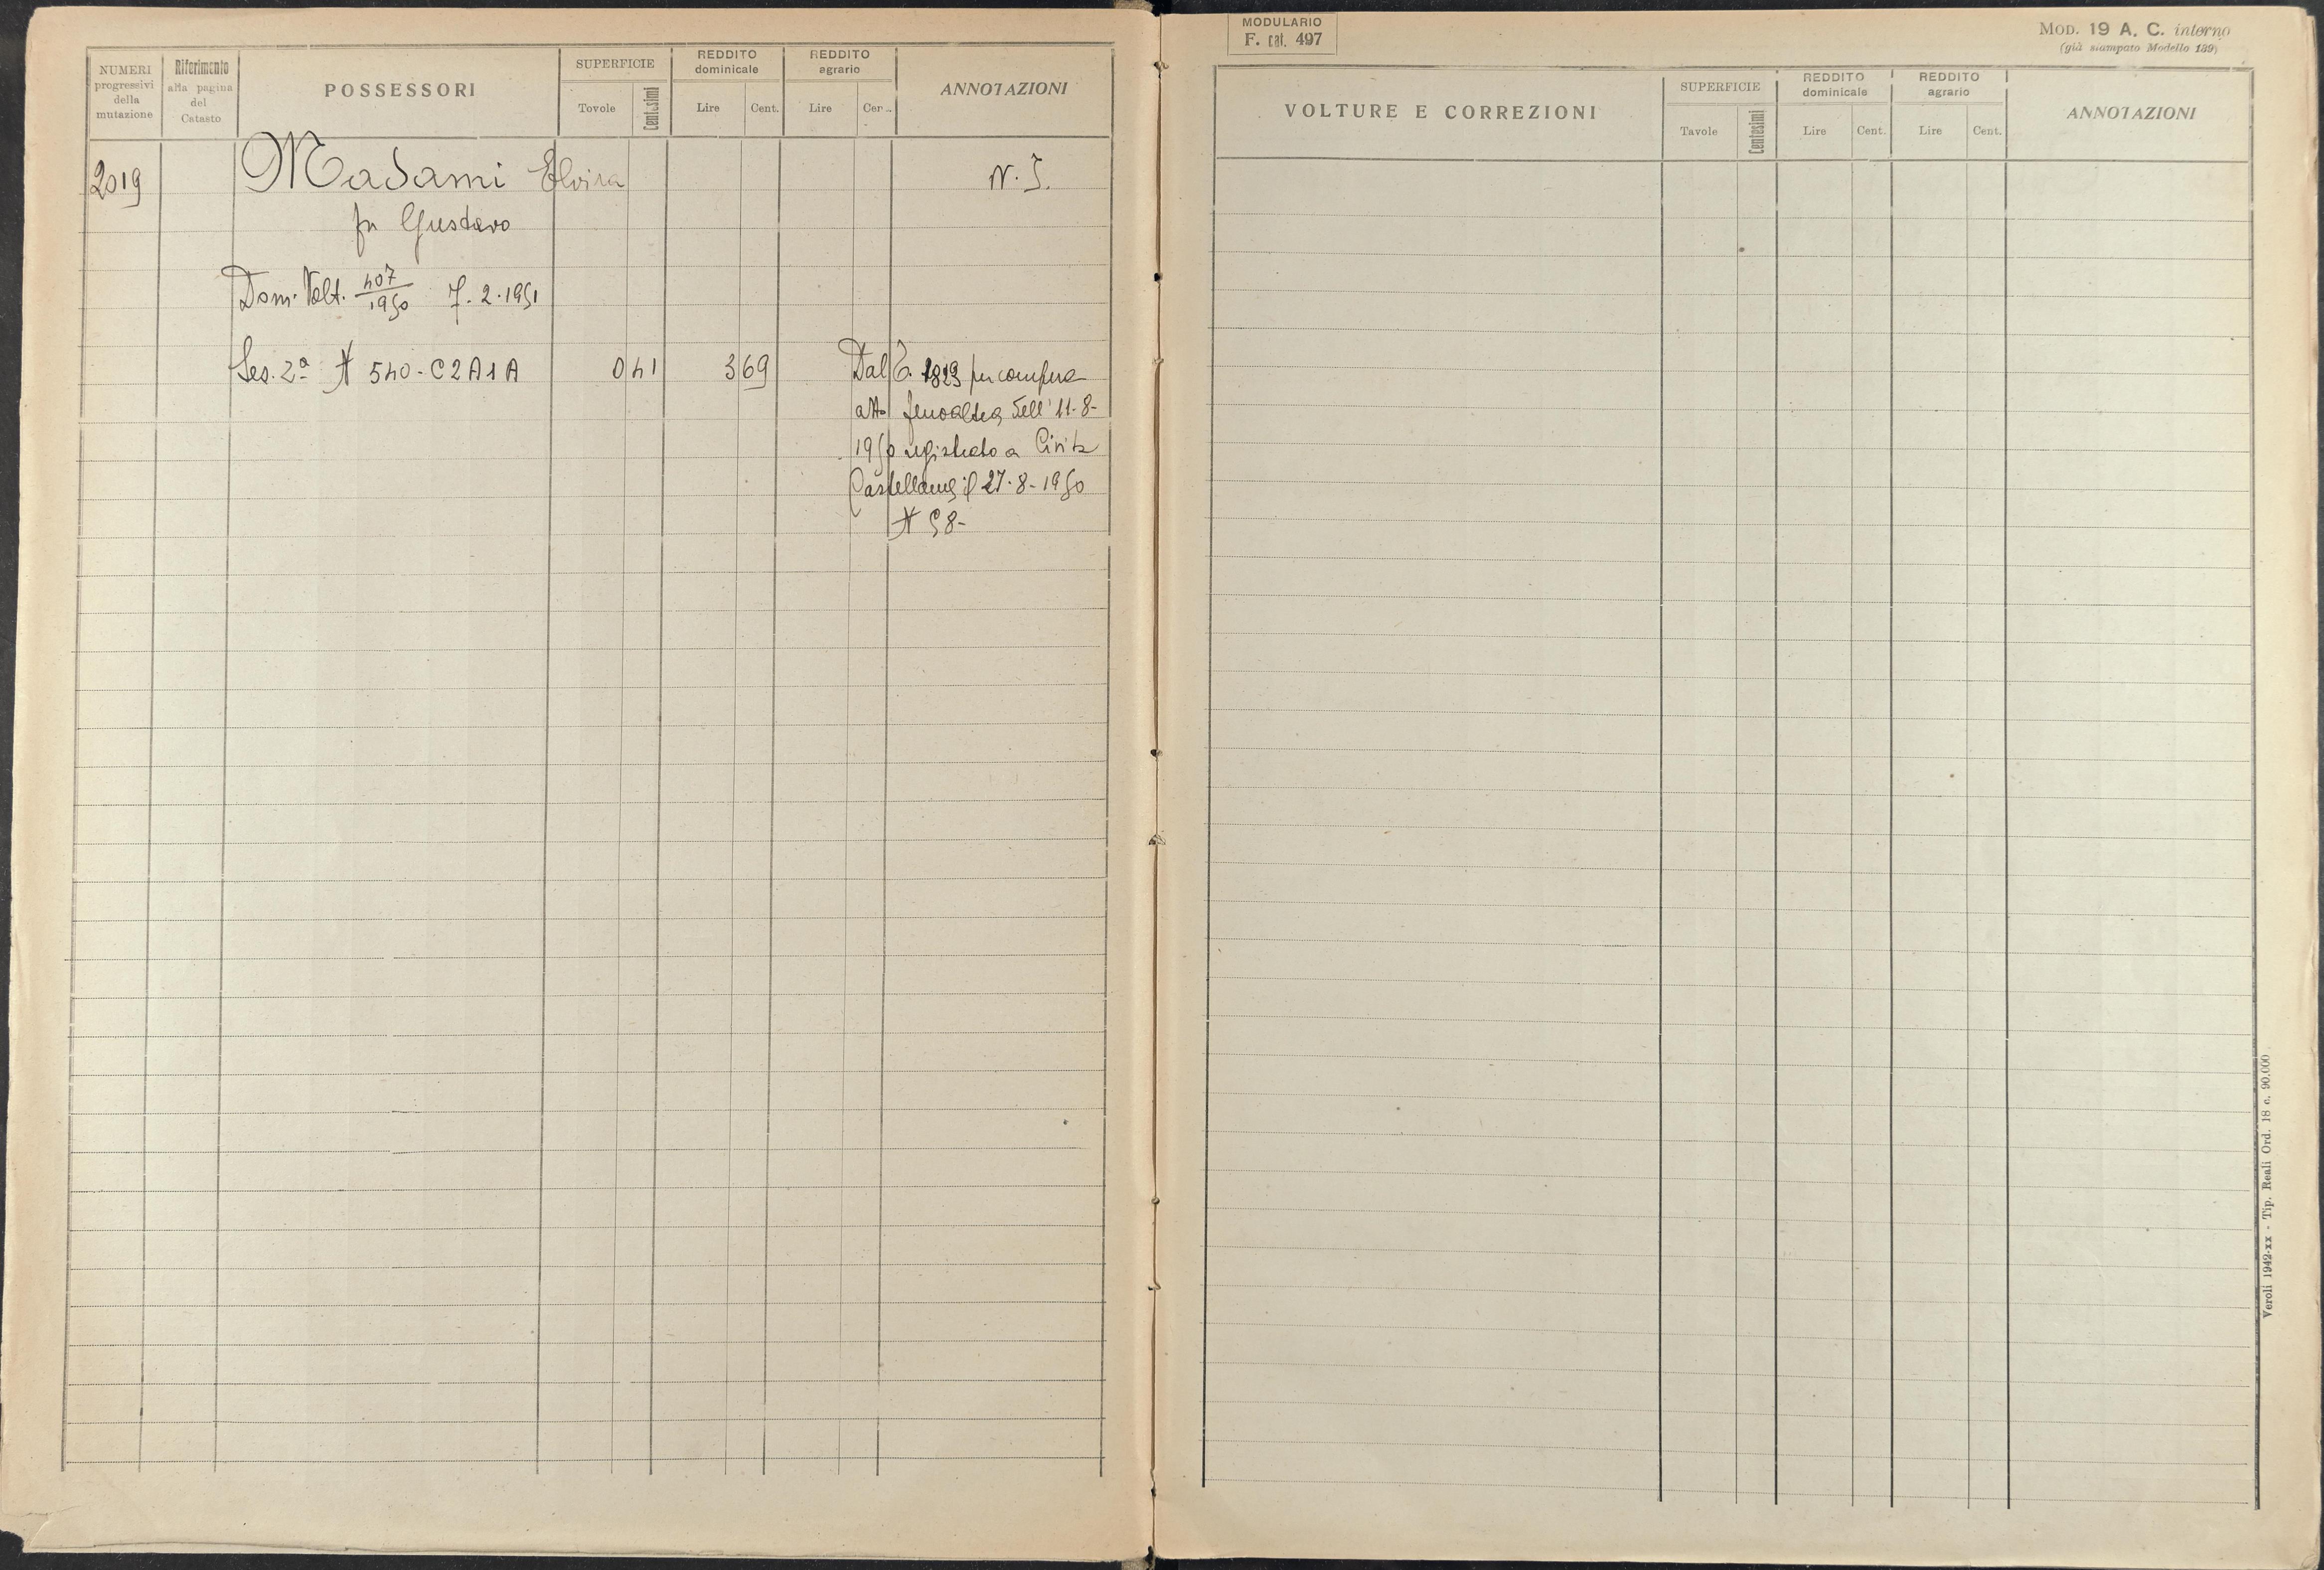 NUMERI
progressivi
della
mutazione
Riferimento
alla pagina
del
Catasto
POSSESSORI
SUPERFICIE
Tovole
Centesimi
REDDITO
dominicale
Lire
Cent.
REDDITO
agrario
Lire
Cer
ANNOTAZIONI
2019
Madami Elvira
N. I.
fu Gustavo
Dom. Volt. 407/1950 7.2.1951
Ses. 2ª N 540-C2A1A
0 41
3 69
Dal C. per compera
atto dell' 11-8-
1950 registrato a Civita
Castellana il 27-8-1950
N 58-
MODULARIO
F. cat. 497
MOD. 19 A. C. interno
(già stampato Modello 189)
VOLTURE E CORREZIONI
SUPERFICIE
Tavole
Centesimi
REDDITO
dominicale
Lire
Cent.
REDDITO
agrario
Lire
Cent.
ANNOTAZIONI
Veroli 1942-xx - Tip. Reali Ord. 18 c. 90.000